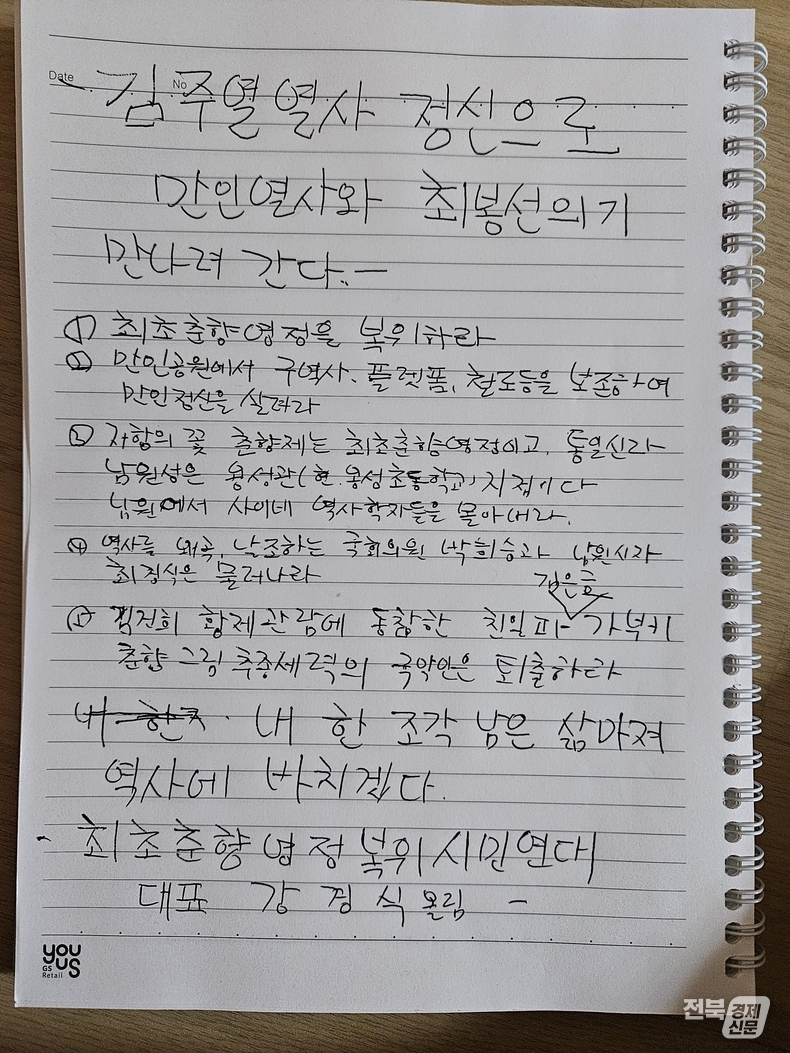 Date
No
김주열 열사 정신으로
만인열사와 최봉선의기
만나려 간다. —
① 최초춘향영정을 복위하라
② 만인공원에서 구역사. 플렛폼, 철로등을 보존하여
만인정신을 살려라
③ 저항의 꽃 춘향제는 최초춘향영정이고, 통일신라
남원성은 용성관(현.용성초등학교)지점이다
남원에서 사이비 역사학자들을 몰아내라.
④ 역사를 왜곡, 날조하는 국회의원 박희승과 남원시장
최경식은 물러나라
김은호
⑤ 김건희 황제관람에 동참한 친일파 가부키
춘향그림 추종세력의 국악인은 퇴출하라
내 한 조각 남은 삶마져
역사에 바치겠다.
- 최초춘향영정복위시민연대
대표 강경식 올림 —
you us
GS Retail
전북경제신문